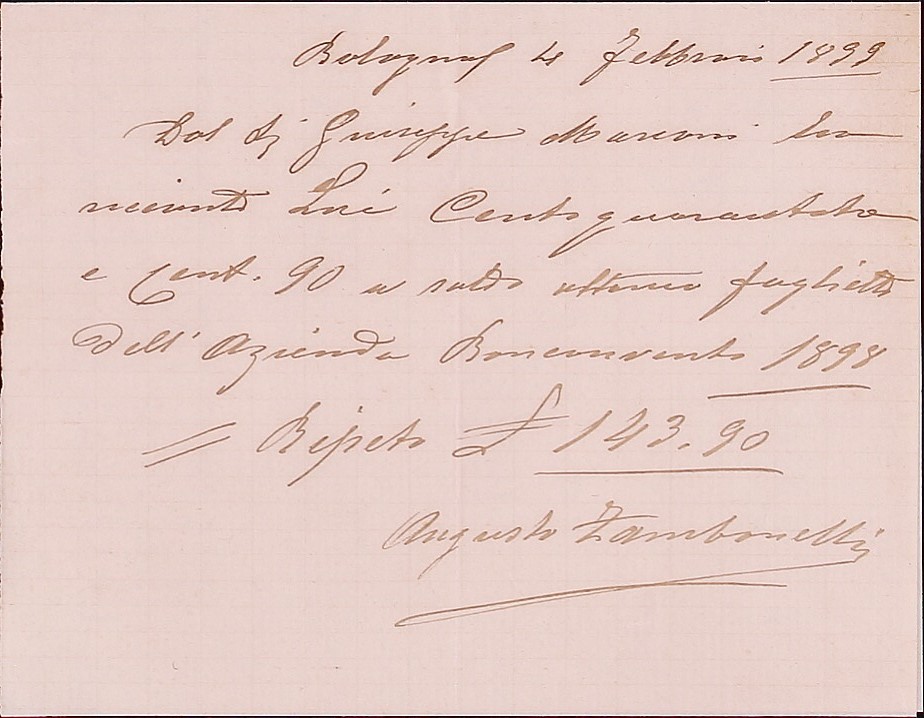 Bologna 4 Febbraio 1899
Dal Sig Giuseppe Marconi ho
ricevuto Lire Centoquarantatre
e Cent. 90 a saldo foglietto
dell' Azienda Bonconvento 1898
Ripeto £ 143.90
Augusto Zambonelli